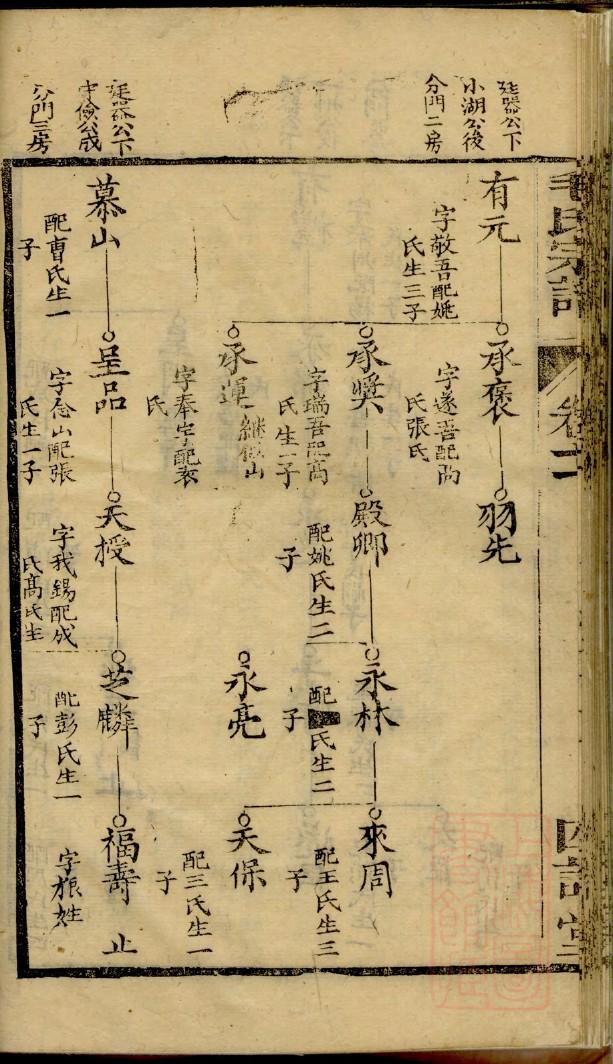 毛氏宗譜
卷十二
廷器公下
小湖公後
分門二房
有元
字敬吾配姚
氏生三子
承褒
字遂吾配高
氏張氏
羽先
承奬
字瑞吾配高
氏生一子
殿卿
配姚氏生二
子
永林
配
氏生二
子
來周
配王氏生三
子
承運
字奉宇配袁
氏
永亮
天保
配三氏生一
子
廷器公下
守儉公成
分門三房
慕山
配曹氏生一
子
呈品
字念山配張
氏生一子
天授
字我錫配成
氏高氏生
芝麟
配彭氏生一
子
福壽
止